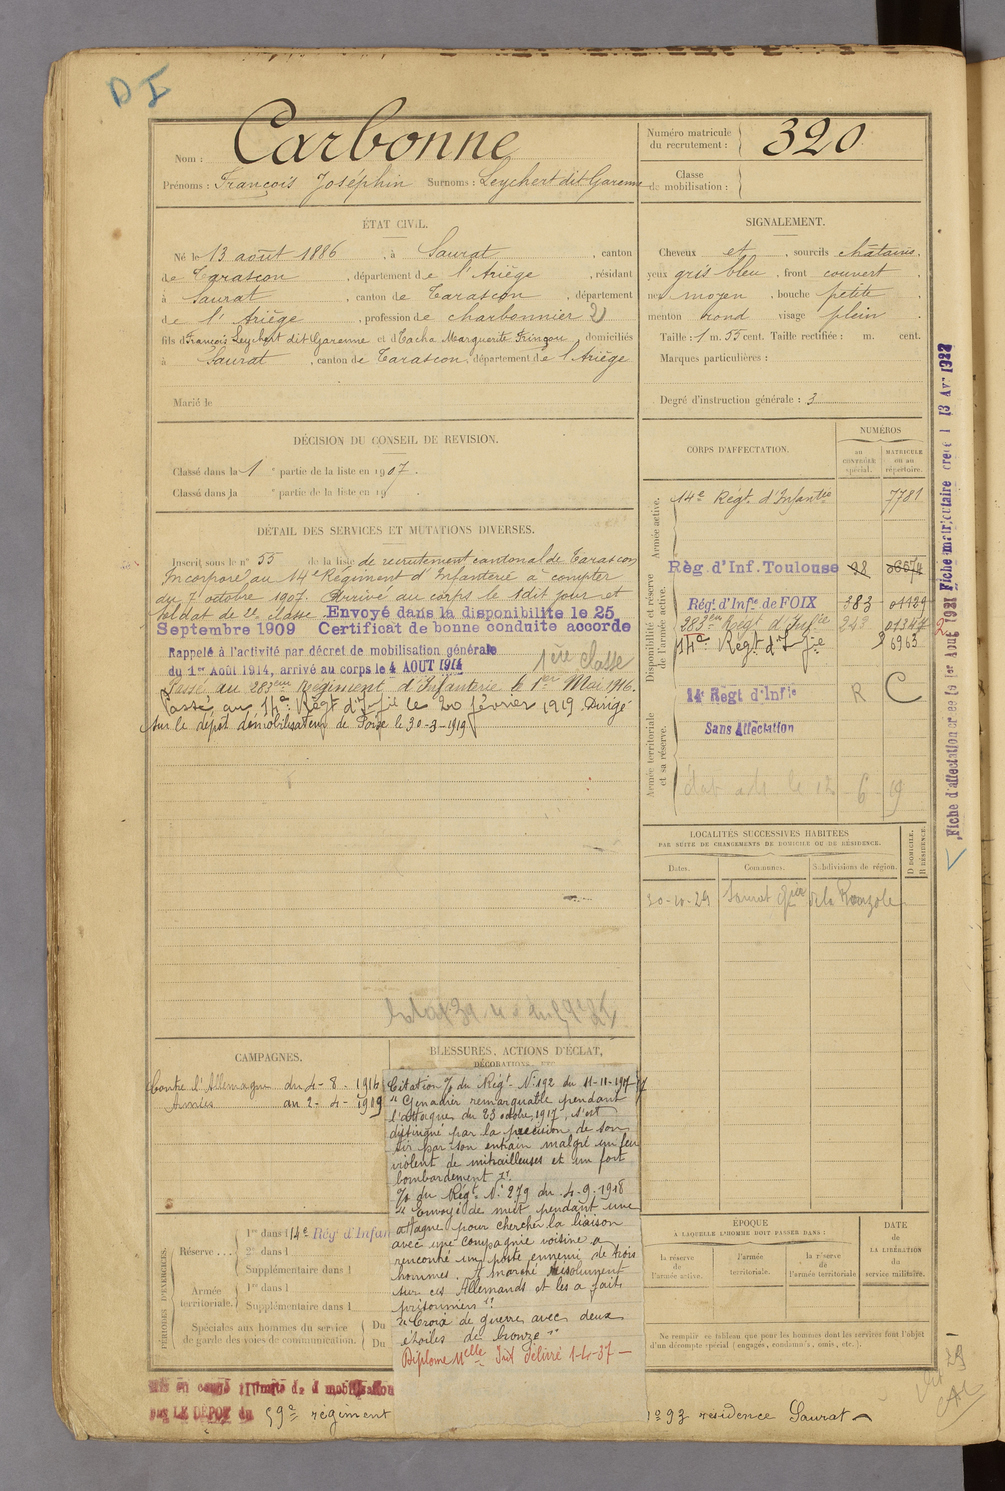 D I
Nom : Carbonne
Numéro matricule du recrutement : 320
Prénoms : François Joséphin Surnoms : Leychert dit Garenne
Classe de mobilisation :
ÉTAT CIVIL.
Né le 13 août 1886, à Saurat, canton
de Tarascon, département de l'Ariège, résidant
à Saurat, canton de Tarascon, département
de l'Ariège, profession de charbonnier
fils de François Leychert dit Garenne et de Tacha Marguerite Fringou domiciliés
à Saurat, canton de Tarascon, département de l'Ariège
Marié le
SIGNALEMENT.
Cheveux et, sourcils châtains,
yeux gris bleu, front couvert,
nez moyen, bouche petite,
menton rond visage plein.
Taille : 1 m. 55 cent. Taille rectifiée : m. cent.
Marques particulières :
Degré d'instruction générale : 3
DÉCISION DU CONSEIL DE REVISION.
Classé dans la 1e partie de la liste en 1907.
Classé dans la e partie de la liste en 19
DÉTAIL DES SERVICES ET MUTATIONS DIVERSES.
Inscrit sous le n° 55 de la liste de recrutement cantonal de Tarascon
Incorporé au 14e Régiment d'Infanterie à compter
du 7 octobre 1907. Arrivé au corps le dit jour et
soldat de 2e classe. Envoyé dans la disponibilite le 25
Septembre 1909 Certificat de bonne conduite accorde
Rappelé à l'activité par décret de mobilisation générale
du 1er Août 1914, arrivé au corps le 4 AOUT 1914 1ère classe
Passé au 283eme Régiment d'Infanterie le 1er Mai 1916.
Passé au 14e Régt d'Infie le 20 février 1919 Dirigé
sur le dépôt démobilisateur de Foix le 30-3-1919
CORPS D'AFFECTATION.
NUMÉROS
au CONTRÔLE spécial.
MATRICULE ou au répertoire.
Armée active.
14e Régt d'Infantie 7781
Disponibilité et réserve de l'armée active.
Règ. d'Inf. Toulouse
Régt d'Infie de FOIX 383 01129
283eme Régt d'Infie 243
14e Régt d'Infie 6963
Armée territoriale et sa réserve.
14e Regt d'Infie R C
Sans Affectation
12 6 19
LOCALITÉS SUCCESSIVES HABITÉES
PAR SUITE DE CHANGEMENTS DE DOMICILE OU DE RÉSIDENCE.
Dates. Communes. Subdivisions de région. D DOMICILE. R RÉSIDENCE.
Saurat
CAMPAGNES.
Contre l'Allemagne du 4-8-1916
au 2-4-1919
BLESSURES, ACTIONS D'ÉCLAT,
DÉCORATIONS, ETC.
Citation % du Régt N° 192 du 11-11-1917
"Grenadier remarquable pendant
l'attaque du 23 octobre 1917, s'est
distingué par la précision de son
tir par son entrain malgré un feu
violent de mitrailleuses et un fort
bombardement".
% du Régt N° 279 du 4-9-1918
"Envoyé de nuit pendant une
attaque pour chercher la liaison
avec une compagnie voisine a
rencontré un poste ennemi de trois
hommes. A marché résolument
sur ces Allemands et les a faits
prisonniers".
"Croix de guerre avec deux
étoiles de bronze"
PÉRIODES D'EXERCICES.
Réserve ...
1re dans l 14e Régt d'Infan
2e dans l
Supplémentaire dans l
Armée territoriale.
1re dans l
Supplémentaire dans l
Spéciales aux hommes du service
de garde des voies de communication.
Du
Du
ÉPOQUE
À LAQUELLE L'HOMME DOIT PASSER DANS :
la réserve de l'armée active.
l'armée territoriale.
la réserve de l'armée territoriale
DATE
de
LA LIBÉRATION
du
service militaire.
Ne remplir ce tableau que pour les hommes dont les services font l'objet
d'un décompte spécial (engagés, condamnés, omis, etc.).
59e régiment
residence Saurat